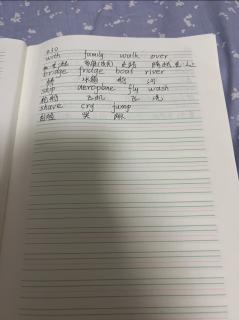 p30
with family walk over
和…一起 家庭(成员) 走路
bridge fridge boat river
桥 冰箱 船 河
ship aeroplane fly wash
轮船 飞机 飞 洗
shave cry jump
刮脸 哭 跳